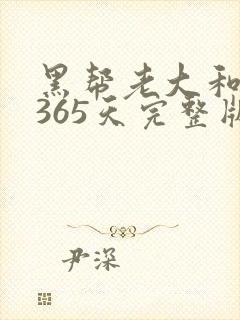 黑帮老大和
365天完整版
尹深